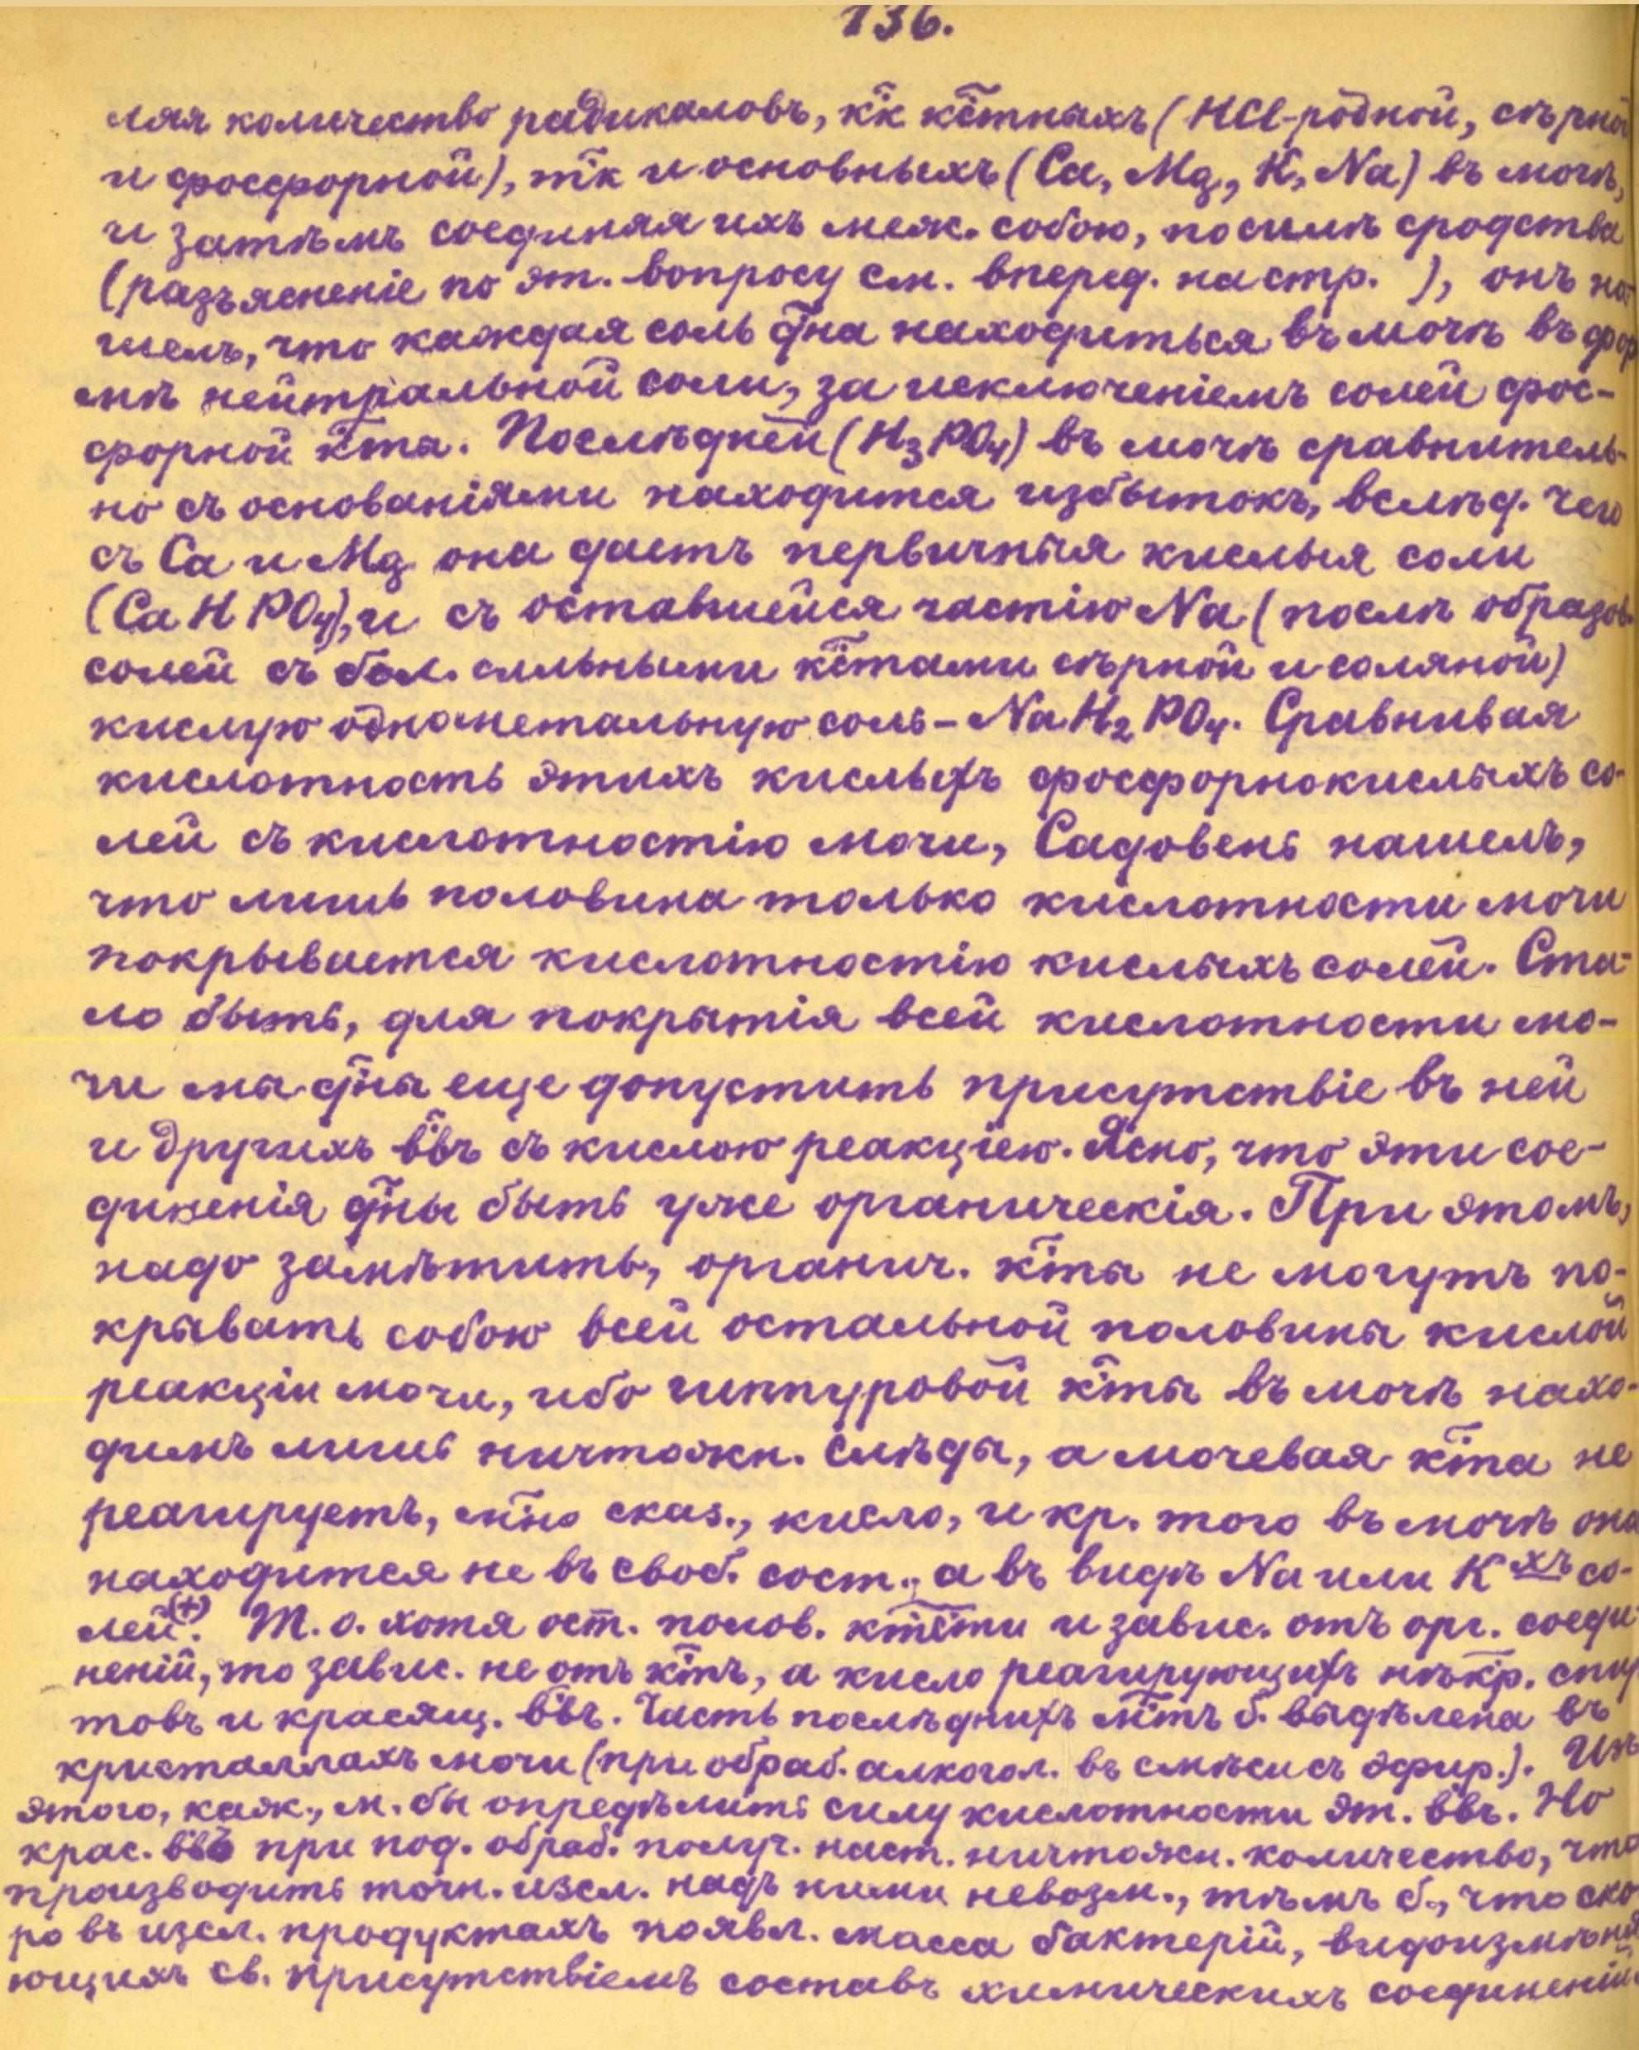 136.
ляя количество радикаловъ, кк кстныхъ (HCl-родной, сѣрной
и фосфорной), тк и основныхъ (Ca, Mg, K, Na) въ мочѣ,
и затѣмъ соединяя ихъ меж. собою, по силѣ сродства
(разъясненіе по эт. вопросу см. вперед. на стр. ), онъ на-
шелъ, что каждая соль дна находиться въ мочѣ въ фор
мѣ нейтральной соли, за исключеніемъ солей фос-
форной кты. Послѣдней (H3PO4) въ мочѣ сравнитель-
но съ основаніями находится избытокъ, вслѣд. чего
съ Ca и Mg она даетъ первичныя кислыя соли
(CaHPO4), и съ оставшейся частію Na (послѣ образов.
солей съ бол. сильными кстами сѣрной и соляной)
кислую однометальную соль - NaH2PO4. Сравнивая
кислотность этихъ кислыхъ фосфорнокислыхъ со-
лей съ кислотностію мочи, Садовень нашелъ,
что лишь половина только кислотности мочи
покрывается кислотностію кислыхъ солей. Ста-
ло быть, для покрытія всей кислотности мо-
чи мы дны еще допустить присутствіе въ ней
и другихъ ввъ съ кислою реакціею. Ясно, что эти сое-
диненія дны быть уже органическія. При этомъ,
надо замѣтить, органич. кты не могутъ по-
крывать собою всей остальной половины кислой
реакціи мочи, ибо гиппуровой кты въ мочѣ нахо-
димъ лишь ничтожн. слѣды, а мочевая кта не
реагируетъ, мно сказ., кисло, и кр. того въ мочѣ она
находится не въ своб. сост., а въ видѣ Na или K хъ со-
лей (+). Т. о. хотя ост. полов. ктсти и завис. отъ орг. соеди-
неній, то завис. не отъ ктъ, а кисло реагирующихъ нѣкр. спир
товъ и красящ. ввъ. Часть послѣднихъ мтъ б. выдѣлена въ
кристаллахъ мочи (при обраб. алкогол. въ смѣси съ эфир.). Изъ
этого, каж., м. бы опредѣлить силу кислотности эт. ввъ. Но
крас. ввъ при под. обраб. получ. наст. ничтожн. количество, что
производить точн. изсл. надъ ними невозм., тѣмъ б., что ско
ро въ изсл. продуктахъ появл. масса бактерій, видоизмѣня
ющихъ св. присутствіемъ составъ химическихъ соединеній.